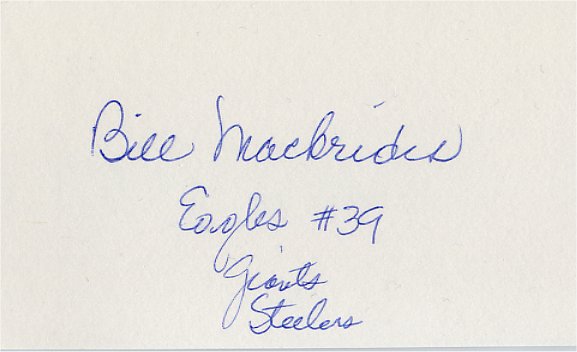 Bill Mackrides
Eagles #39
Giants
Steelers